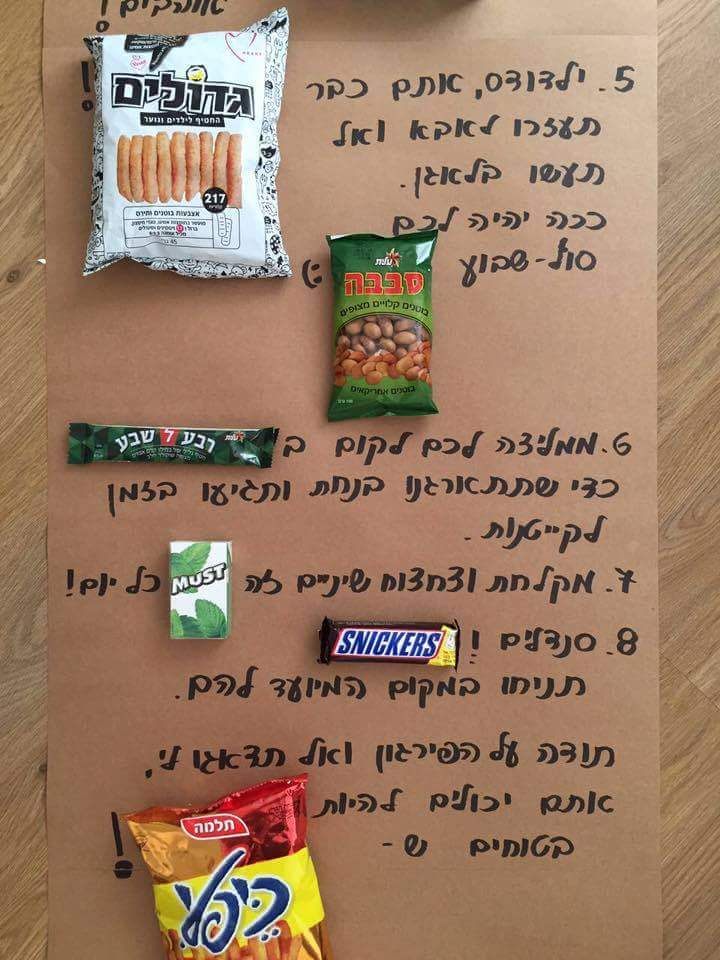 אוהבים!
5. ילדודס, אתם כבר גדולים!
HEART
גדולים
החטיף לילדים ונוער
217
אצבעות בוטנים ותירס
45
תעזרו לאבא ואל
תעשו בלאגן.
ככה יהיה לכם
סופ-שבוע :)
עלית
סבבה
בוטנים קלויים מצופים
בוטנים אמריקאים
6. ממליצה לכם לקום ב
רבע ל שבע
עלית
כדי שתתארגנו בנחת ותגיעו בזמן
לקייטנות.
7. מקלחת וצחצוח שיניים זה MUST כל יום!
8. סנדלים! SNICKERS
תניחו במקום המיועד להם.
תודה על הפירגון ואל תדאגו לי,
אתם יכולים להיות
בטוחים ש-
תלמה
כיפלי
!